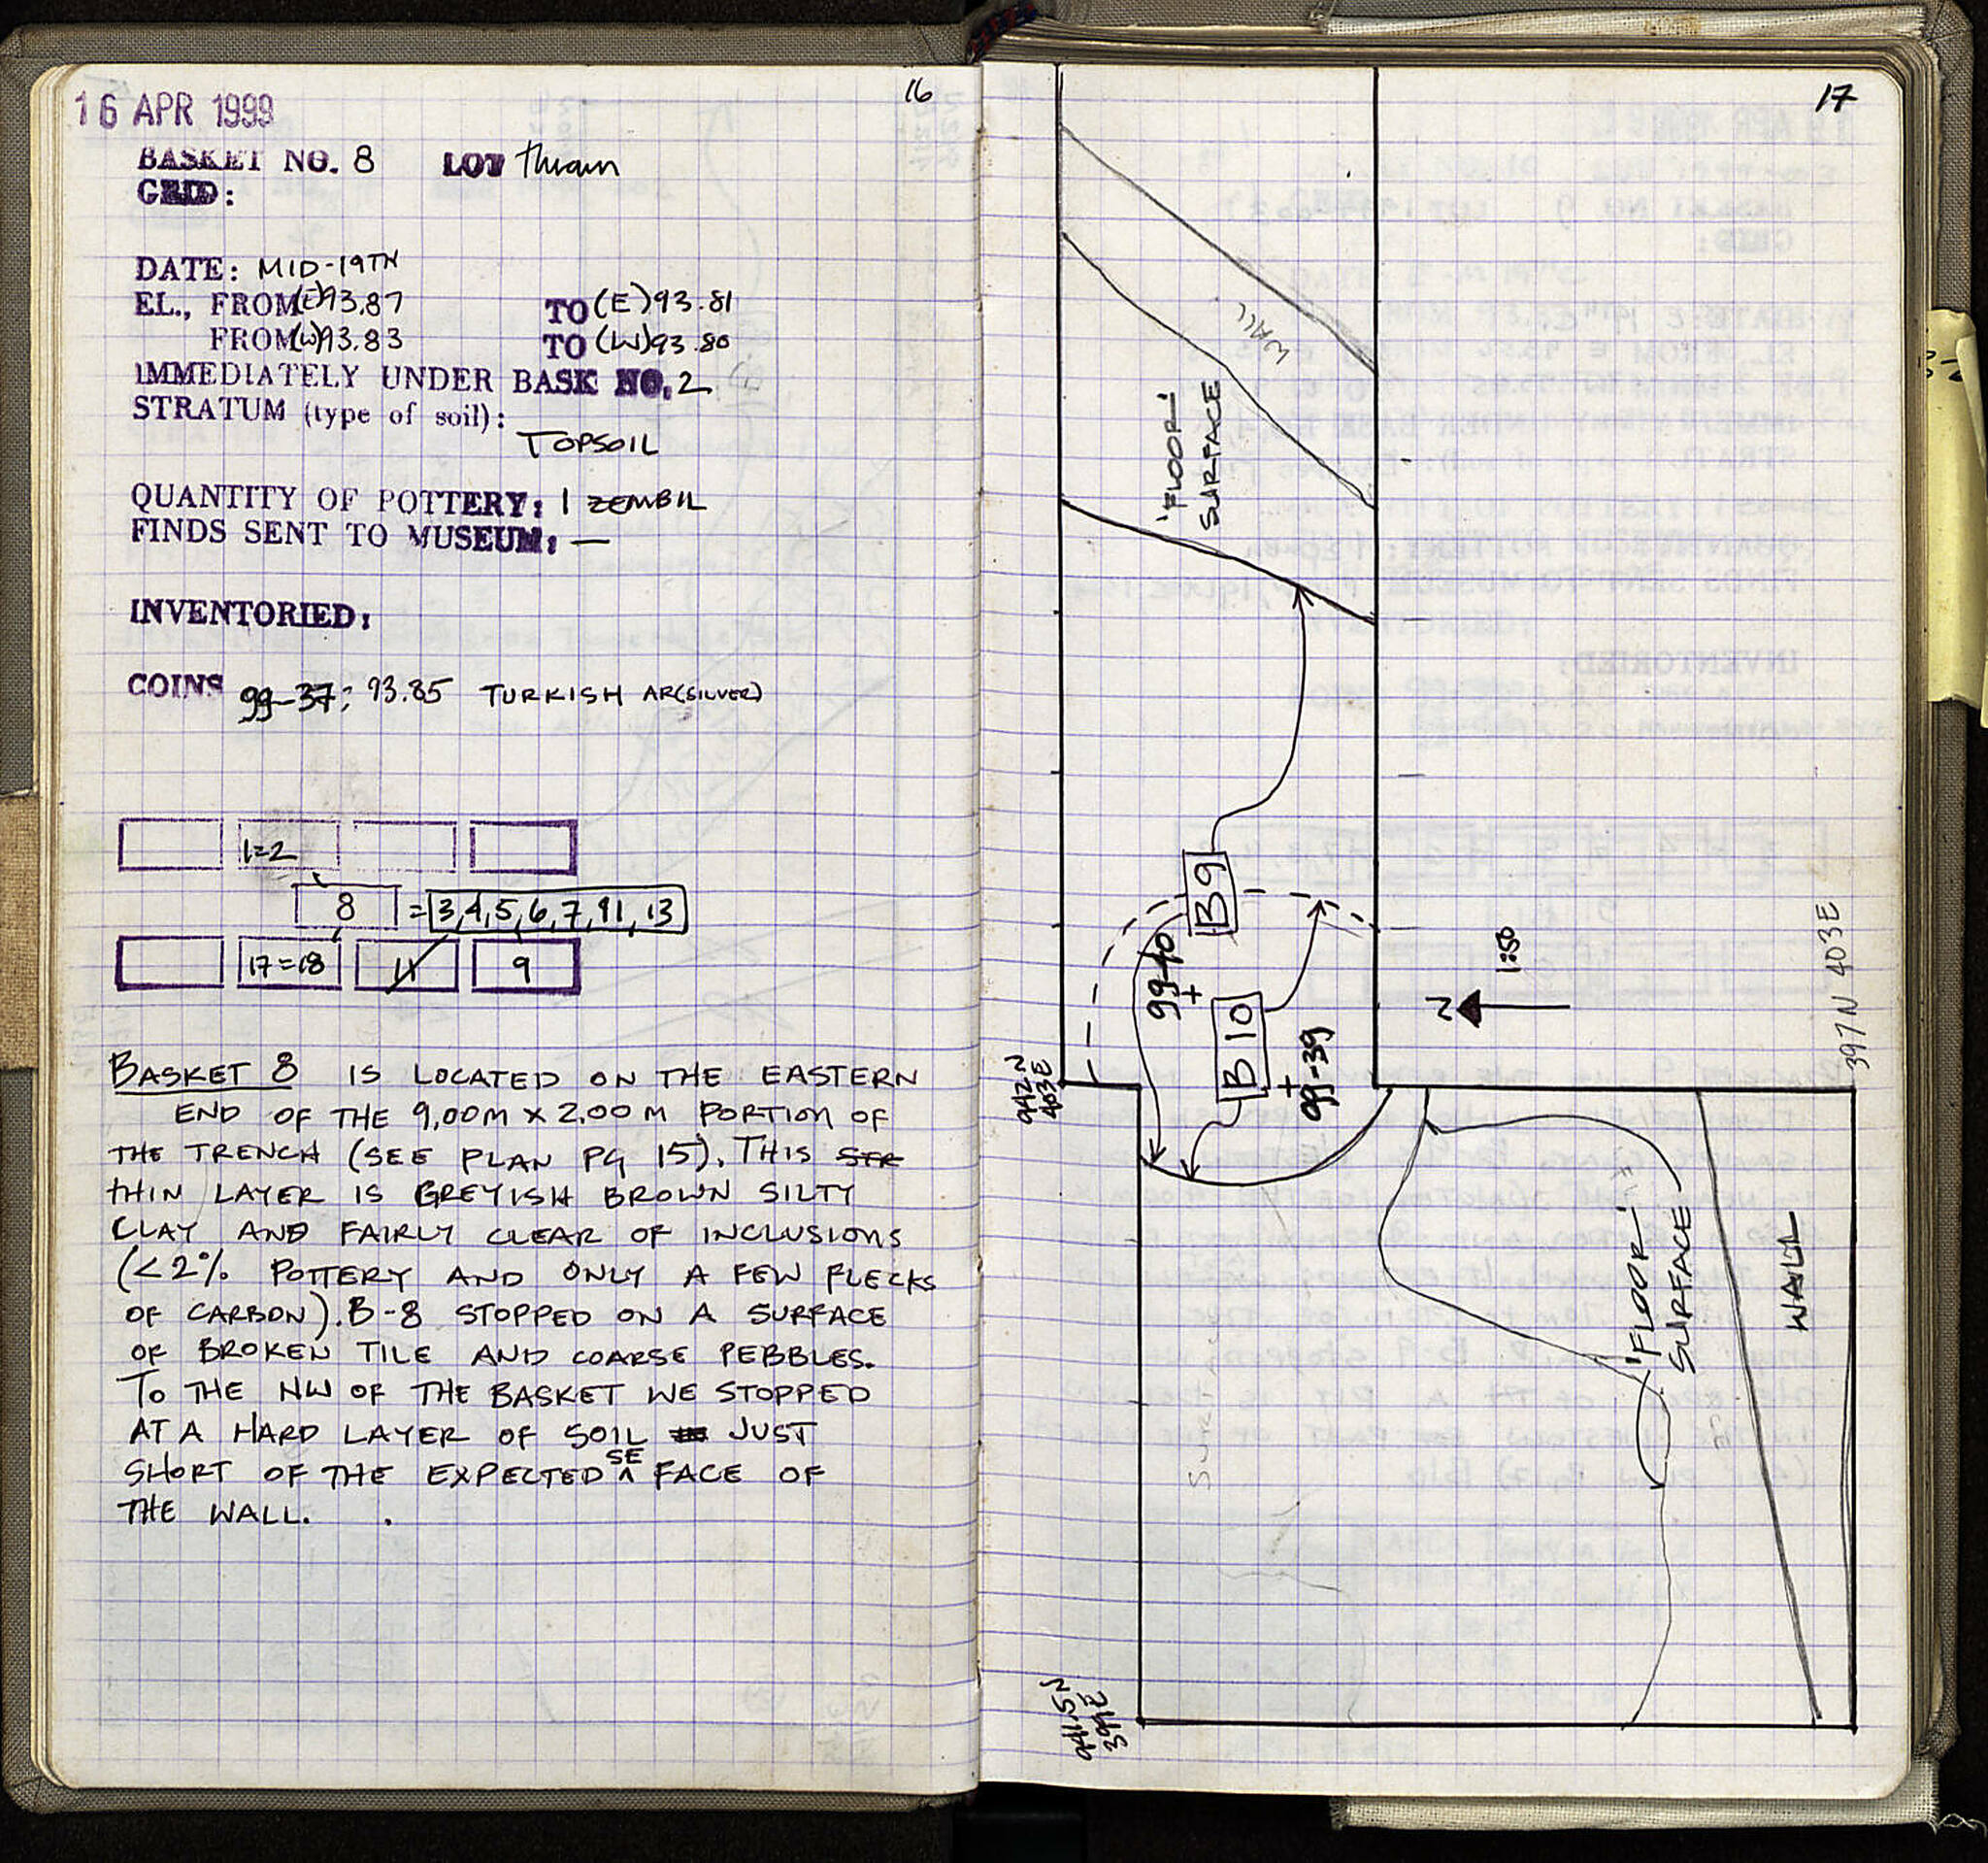 16 APR 1999
16
BASKET NO. 8 LOT thrown
GRID:
DATE: MID-19TH
EL., FROM (E) 93.87 TO (E) 93.81
FROM (W) 93.83 TO (W) 93.80
IMMEDIATELY UNDER BASK NO. 2
STRATUM (type of soil):
TOPSOIL
QUANTITY OF POTTERY: 1 ZEMBIL
FINDS SENT TO MUSEUM: —
INVENTORIED:
COINS 99-37: 93.85 TURKISH AR(SILVER)
1=2
8 = 3,4,5,6,7,11,13
17=18 11 9
BASKET 8 IS LOCATED ON THE EASTERN
END OF THE 9.00M X 2.00M PORTION OF
THE TRENCH (SEE PLAN PG 15). THIS STR
THIN LAYER IS GREYISH BROWN SILTY
CLAY AND FAIRLY CLEAR OF INCLUSIONS
(<2% POTTERY AND ONLY A FEW FLECKS
OF CARBON). B-8 STOPPED ON A SURFACE
OF BROKEN TILE AND COARSE PEBBLES.
TO THE NW OF THE BASKET WE STOPPED
AT A HARD LAYER OF SOIL JUST
SHORT OF THE EXPECTED SE FACE OF
THE WALL.
17
WALL
'FLOOR'
SURFACE
B9
99-40
B10
99-39
N
1:50
397N 403E
942N
403E
'FLOOR'
SURFACE
WALL
SUR
941.5N
399E